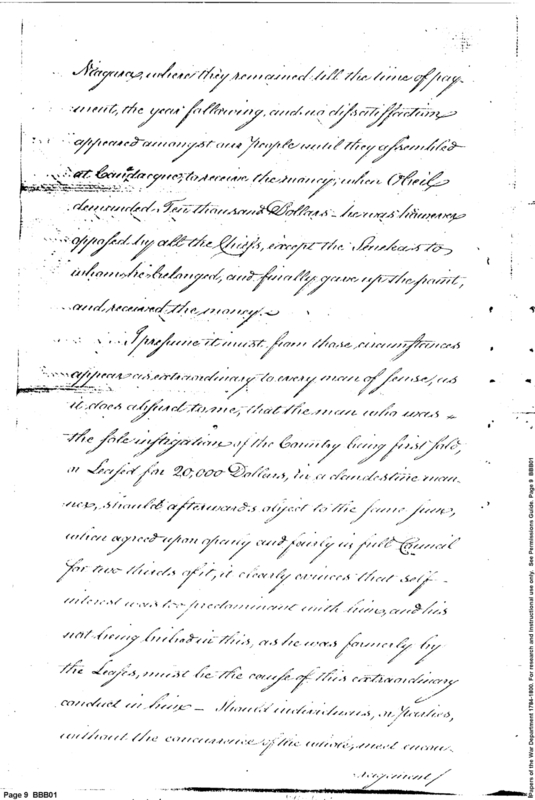 Niagara, where they remained till the time of pay-
ment, the year following, and no dissatisfaction
appeared amongst our People until they assembled
at Canadaque, to receive the money, when Obeil
demanded Ten thousand Dollars – he was however
opposed by all the Chiefs, except the Senekas to
whom he belonged, and finally gave up the point,
and received the money. –
I presume it must from those circumstances
appear as extraordinary to every man of sense, as
it does absurd to me, that the man who was
the sole instigation of the Country being first sold,
or Leased for 20,000 Dollars, in a clandestine man-
ner, should afterwards object to the same sum,
when agreed upon openly and fairly in full Council
for two thirds of it, it clearly evinces that self-
interest was too predominant with him, and his
not being bribed in this, as he was formerly by
the Leases, must be the cause of this extraordinary
conduct in him – Should individuals, or Parties,
without the concurrence of the whole, meet encou-
ragement /
Page 9 BBB01
Papers of the War Department 1784-1800. For research and instructional use only. See Permissions Guide. Page 9 BBB01